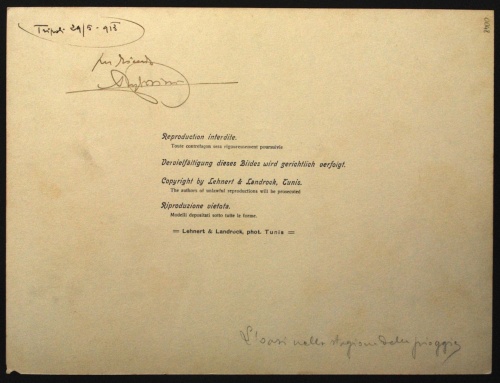 Tripoli 29/5-913
Reproduction interdite.
Toute contrefaçon sera rigoureusement poursuivie
Vervielfältigung dieses Bildes wird gerichtlich verfolgt.
Copyright by Lehnert & Landrock, Tunis.
The authors of unlawful reproductions will be prosecuted
Riproduzione vietata.
Modelli depositati sotto tutte le forme.
Lehnert & Landrock, phot. Tunis
L'oasi nella stagione delle pioggie